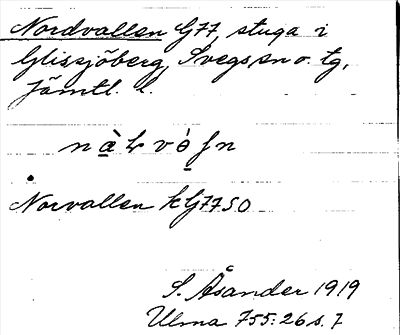 Nordvallen G77, stuga i
Glissjöberg, Svegs sn o. tg,
Jämtl. l.
Norvallen k G77 SO
S. Åsander 1919
Ulma 755:26 s. 7